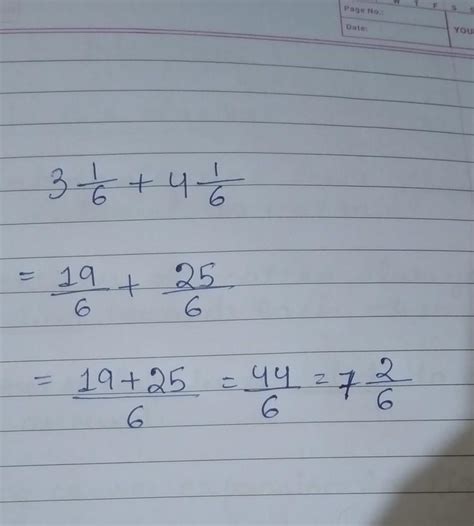 W T F S
Page No.:
Date:
YOU
3 1/6 + 4 1/6
= 19/6 + 25/6
= 19+25/6 = 44/6 = 7 2/6